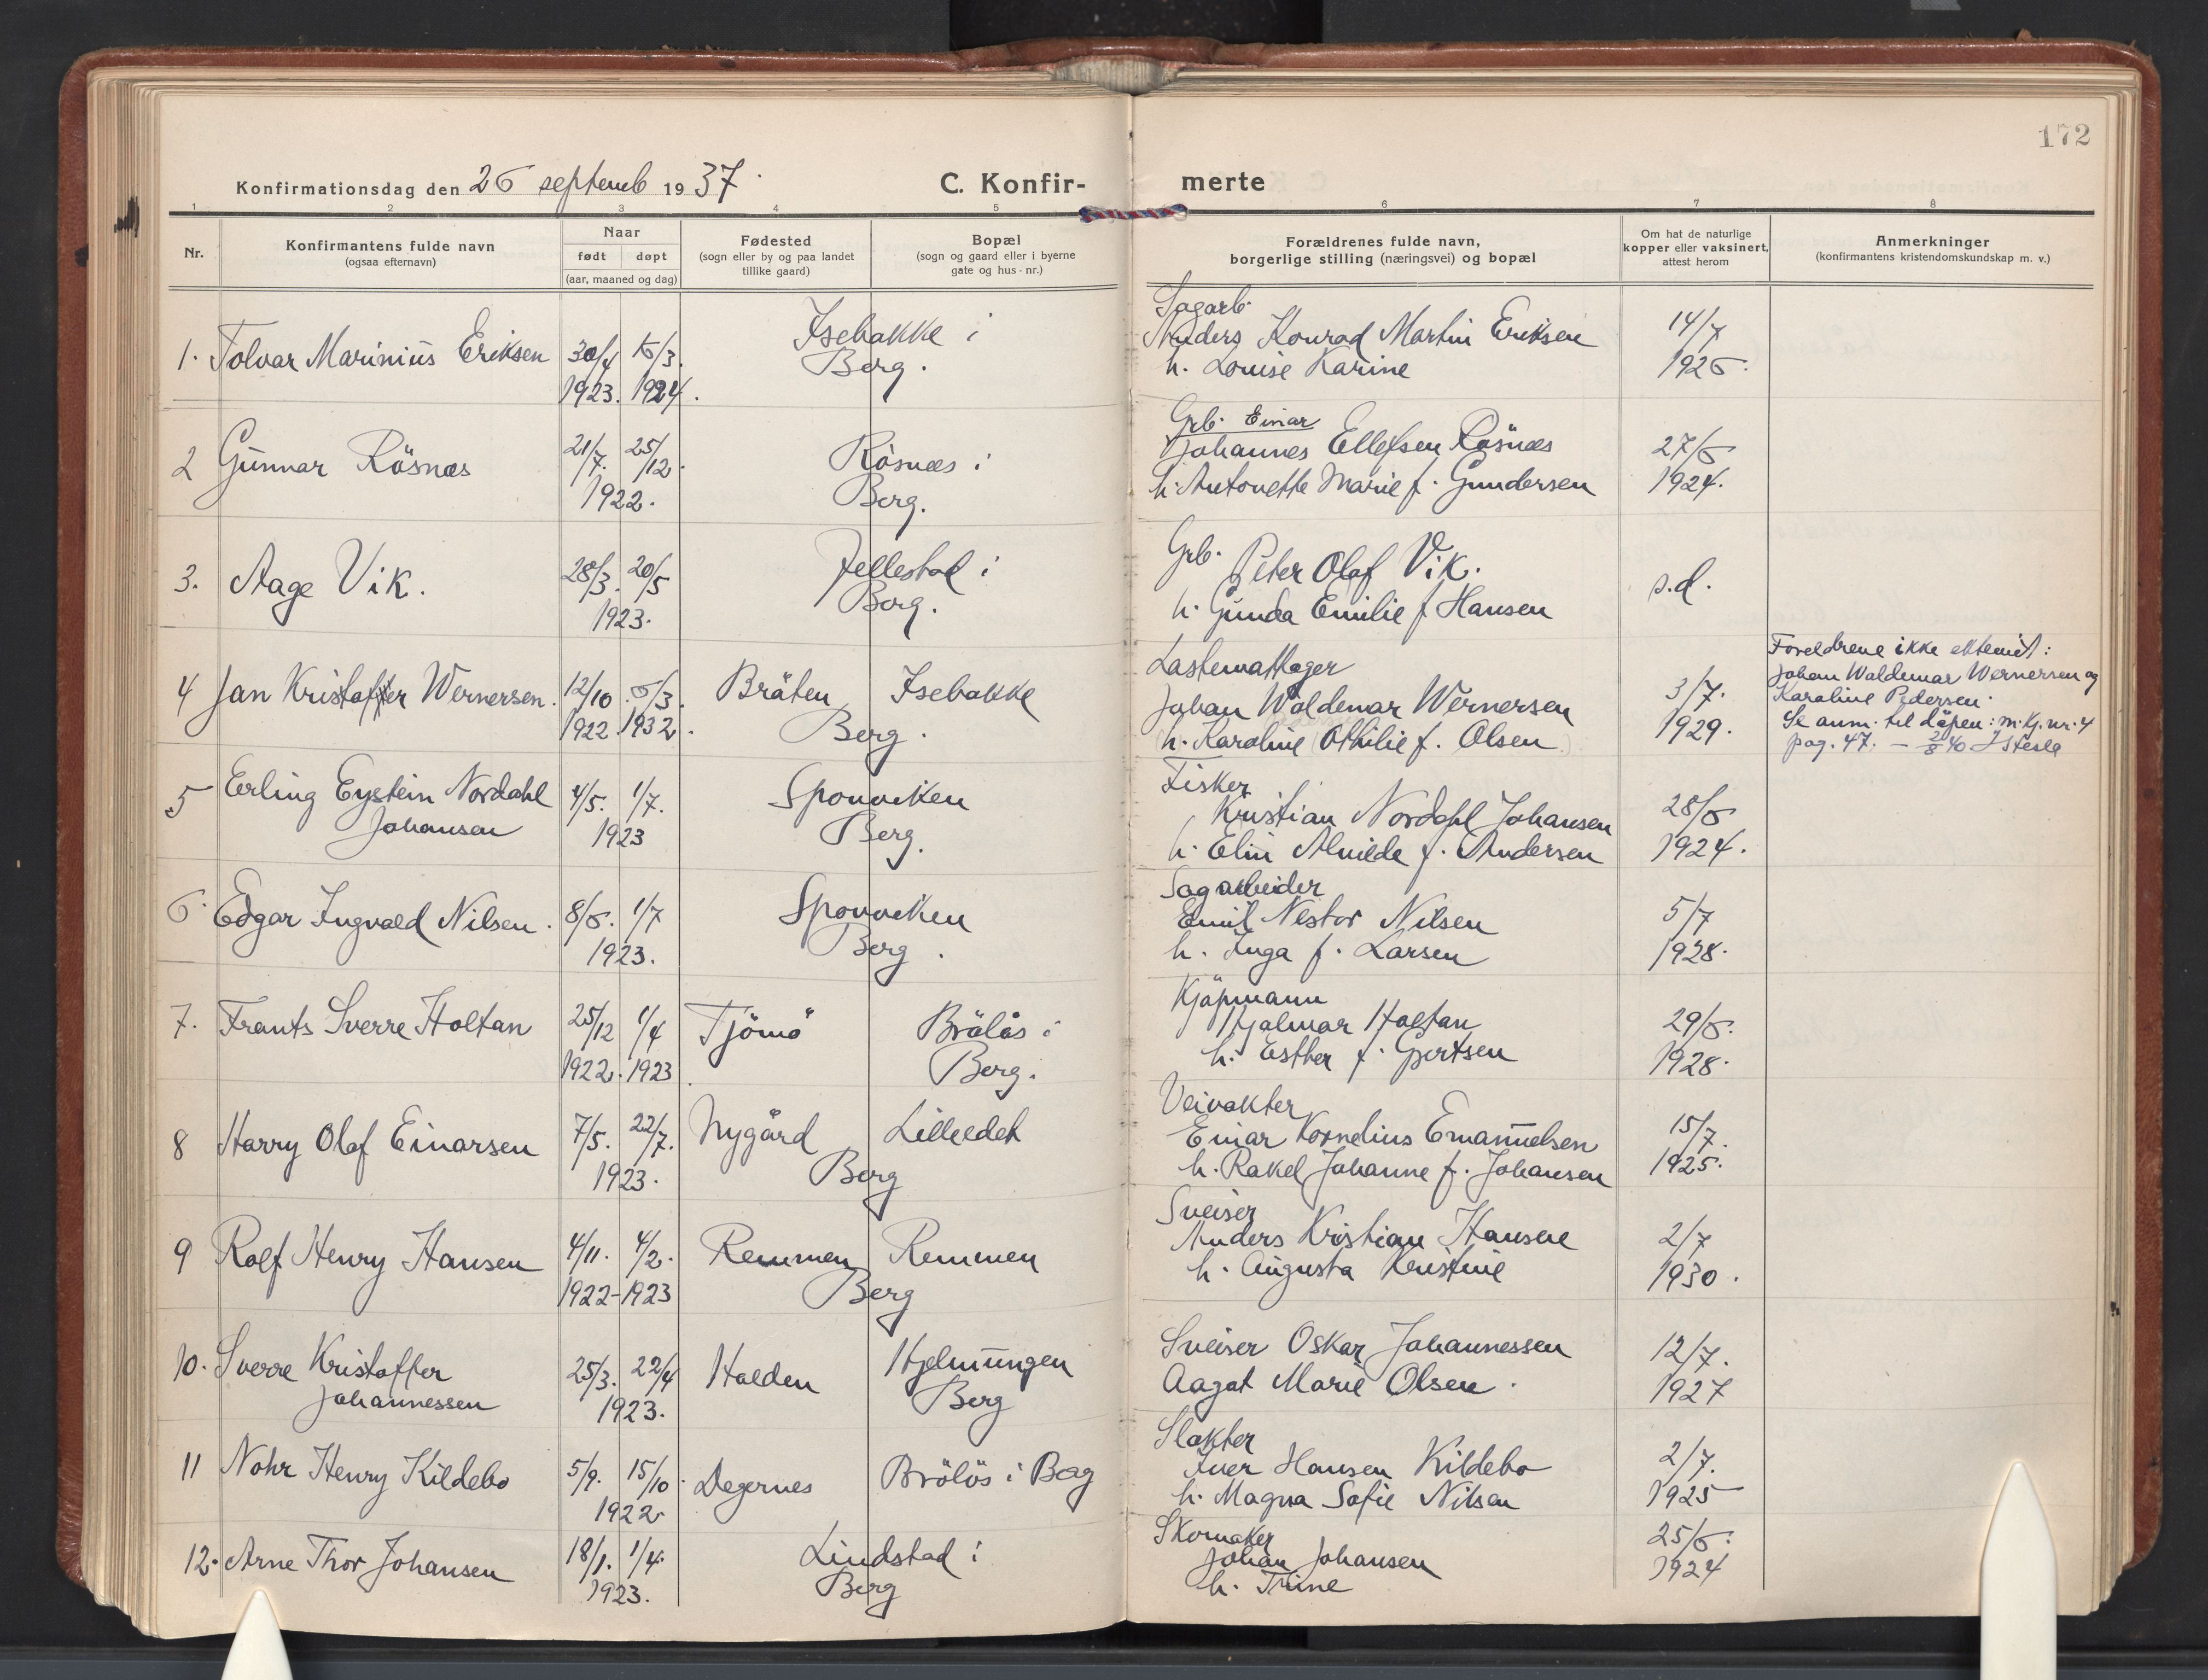 172
Konfirmationsdag den 26 septemb 1937.
C. Konfir-
merte
1 2 3 4 5 6 7 8
Nr.
Konfirmantens fulde navn
(ogsaa efternavn)
Naar
født døpt
(aar, maaned og dag)
Fødested
(sogn eller by og paa landet
tillike gaard)
Bopæl
(sogn og gaard eller i byerne
gate og hus-nr.)
Forældrenes fulde navn,
borgerlige stilling (næringsvei) og bopæl
Om hat de naturlige
kopper eller vaksinert,
attest herom
Anmerkninger
(konfirmantens kristendomskundskap m. v.)
1. Tolvar Marinius Eriksen 30/4 16/3.
1923. 1924.
Isebakke i
Berg.
Sagarb.
Anders Konrad Martin Eriksen
h. Louise Karine
14/7
1926.
2 Gunnar Rösnæs 21/7. 25/12.
1922.
Rösnæs i
Berg.
Grb. Einar
Johannes Ellefsen Rösnæs
h. Antonette Marie f. Gundersen
27/6
1924.
3. Aage Vik. 28/3. 20/5
1923.
Jellestad i
Berg.
Grb.
Peter Olaf Vik.
h. Gunda Emilie f Hansen
s.d.
4 Jan Kristoffer Wernersen. 12/10 6/3.
1922. 1932.
Bräten Isebakke
Berg.
Lastemottager
Johan Waldemar Wernersen
h. Karoline (Othilie f. Olsen)
3/7.
1929.
Foreldrene ikke ektevid:
Johan Waldemar Wernersen og
Karoline Pedersen.
Se anm. til däpen: m.kj. nr. 4
pag. 47. — 2/8 40
5 Erling Eystein Nordahl
Johansen
4/5. 1/7.
1923
Sponviken
Berg.
Fisker
Kristian Nordahl Johansen
h. Elin Alvilde f. Andersen
28/6
1924.
6. Edgar Ingvald Nilsen. 8/6. 1/7
1923.
Sponviken
Berg.
Sagarbeider
Emil Nestor Nilsen
h. Inga f. Larsen
5/7
1928.
7. Frants Sverre Holtan 25/12 1/4
1922. 1923.
Tjömö Brålås i
Berg.
Kjöpmann
Hjalmar Holtan
h. Esther f. Gjertsen
29/6.
1928.
8 Harry Olaf Einarsen 7/5. 22/7.
1923.
Nygård Lilleedet
Berg
Veivokter
Einar Kornelius Emanuelsen
h. Rakel Johanne f. Johansen
15/7.
1925.
9 Rolf Henry Hansen 4/11. 4/2.
1922-1923
Remmen Remmen
Berg
Sveiser
Anders Kristian Hansen
h. Augusta Kristine
2/7
1930.
10. Sverre Kristoffer
Johannessen
25/3. 22/4
1923.
Halden Hjelmungen
Berg
Sveiser Oskar Johannessen
Aagot Marie Olsen.
12/7.
1927
11 Nohr Henry Kildebo 5/9. 15/10.
1922.
Degernes Brålås i Berg
Slakter
Iver Hansen Kildebo
h. Magna Sofie Nilsen
2/7.
1925
12. Arne Thor Johansen 18/1. 1/4.
1923.
Lindstad i
Berg
Skomaker
Johan Johansen
h. Trine
25/6.
1924